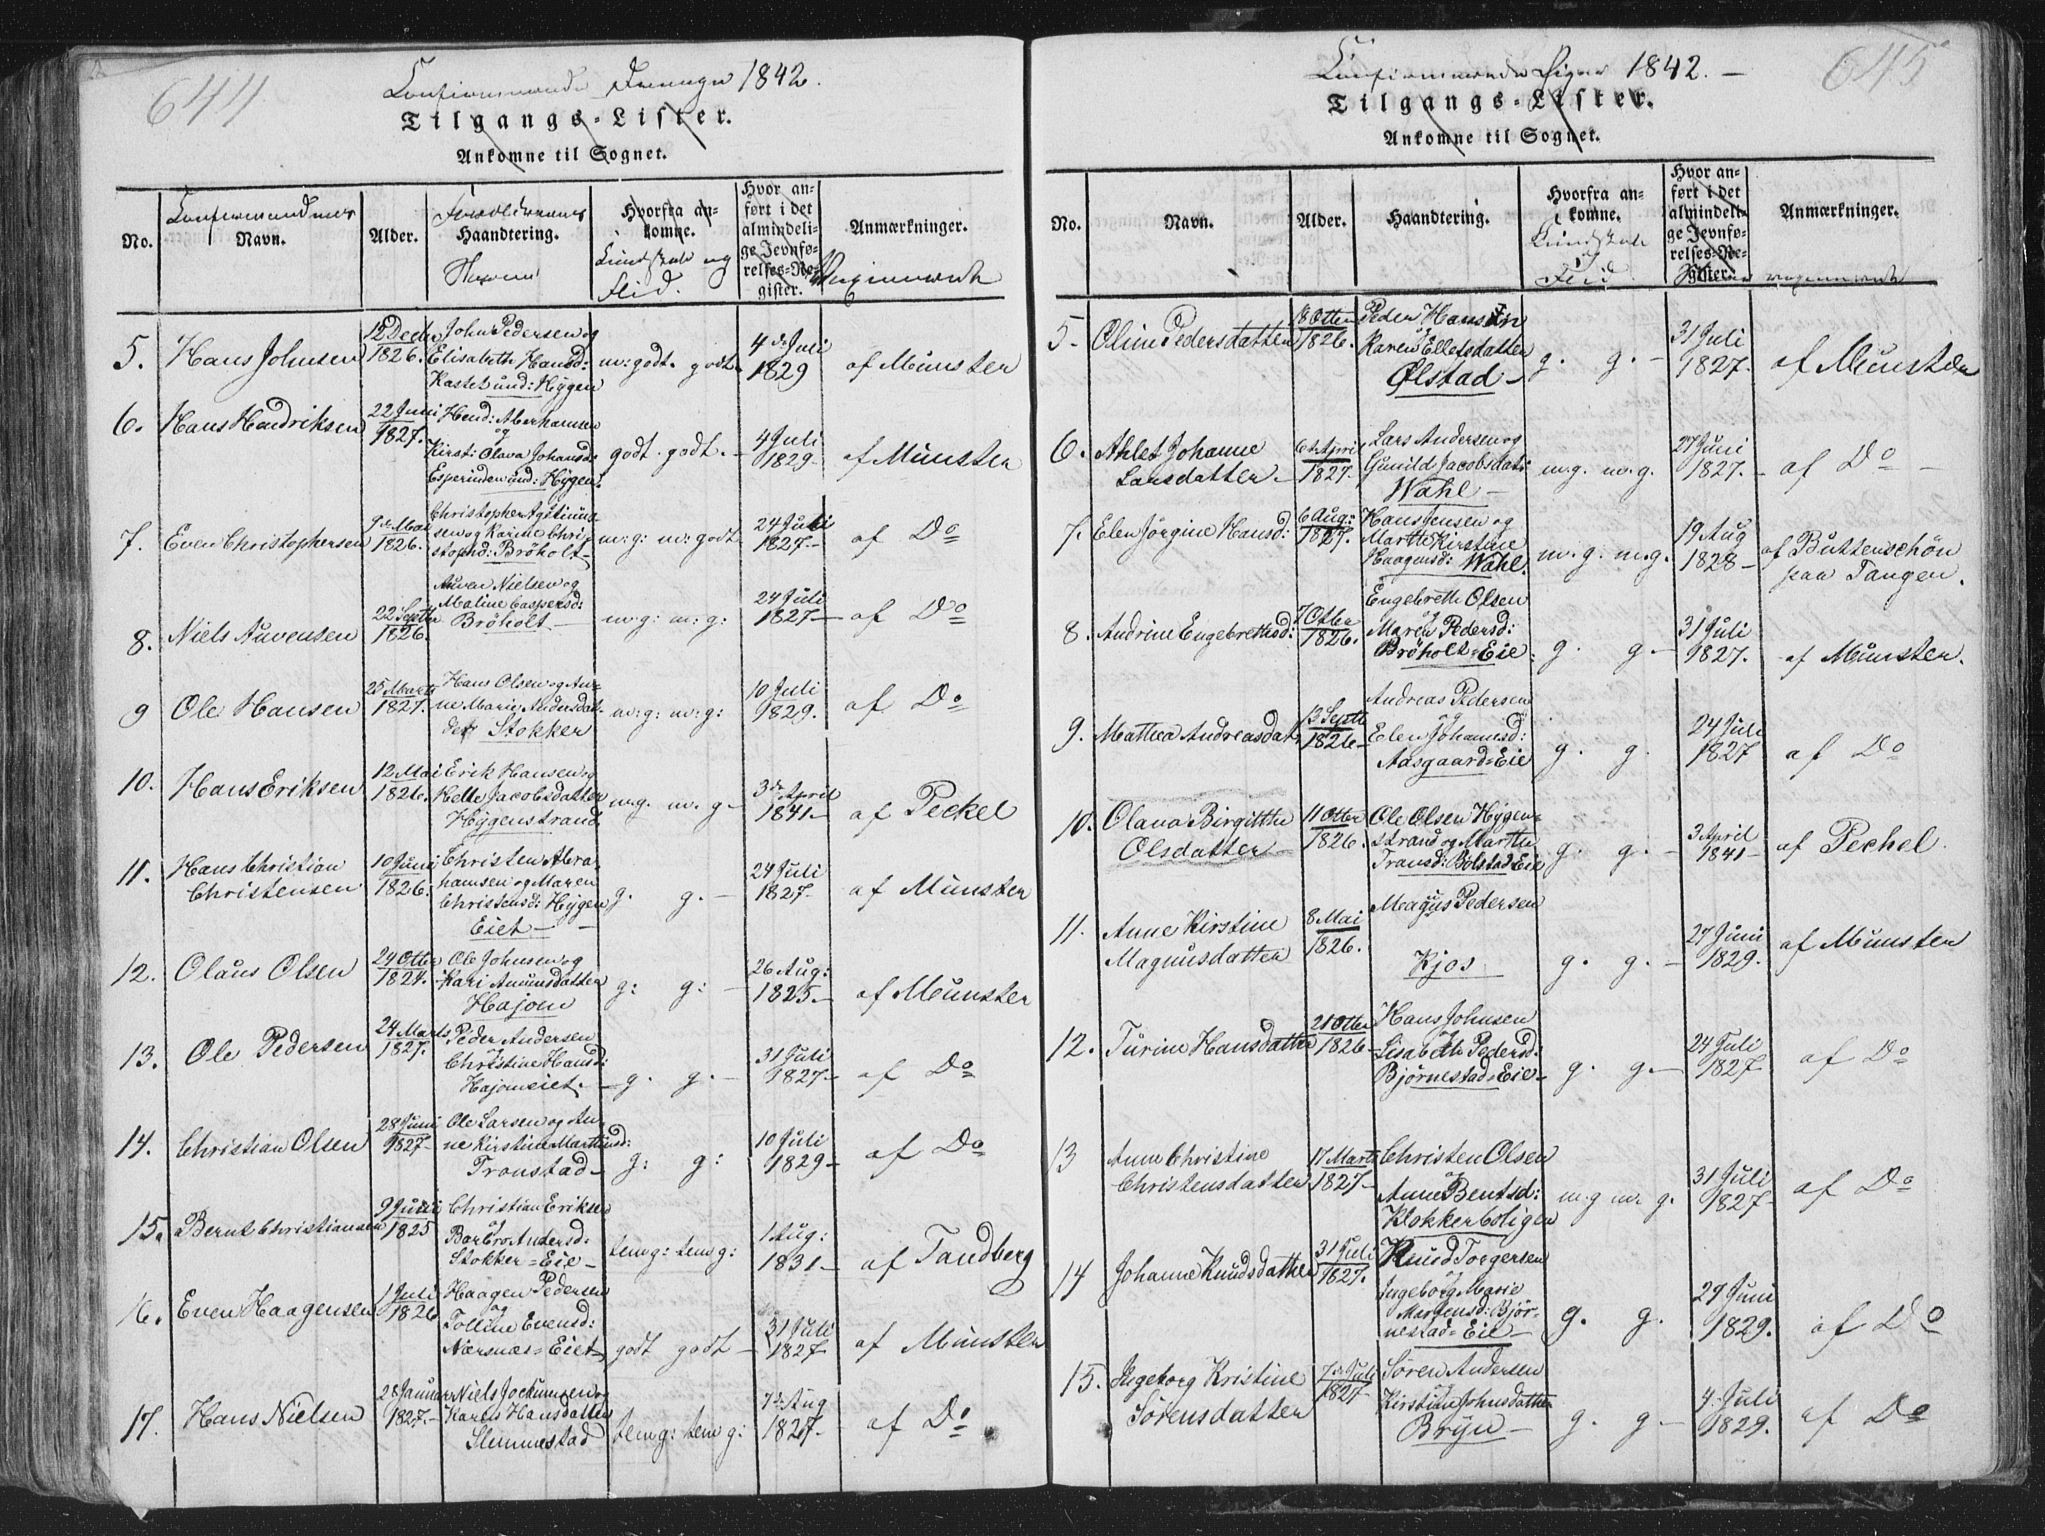 644
Confirmerede Drenge 1842.
Tilgangs-Lister.
Ankomne til Sognet.
No.
Confirmandens
Navn.
Alder.
Forældrenes
Haandtering.
Navne
Hvorfra an-
komne.
Kundskab og
Flid.
Hvor an-
ført i det
almindeli-
ge Jevnfø-
relses-Re-
gister.
Anmærkninger.
5. Hans Johnsen
12 Decbr
1826.
John Pedersen og
Elisabeth Hansd:
Kastet und: Hÿgen
m: godt. godt.
4de Juli
1829
af Münster
6. Hans Hendriksen
22 Juni
1827.
Hend: Aberhamsen
og
Kirst: Olava Johansd:
Esperinden und: Hÿgen.
godt. godt. -
4 Juli
1829
af Münster
7. Even Christophersen
9de Mai
1826.
Christopher Agstinus-
sen og Karine Chri-
stophd: Bröholt
m: g: m: godt
24 Juli
1827-
af Do
8. Niels Auvensen
22 Septbr
1826.
Auven Nielsen og
Maline Caspersd:
Bröholt
m: g: m: g:
24 Juli
1827-
af Do
9 Ole Hansen
25 Marts
1827.
Hans Olsen og An-
ne Marie Andersdat-
der Stokker
m: g: m: g:
10 Juli
1829.
af Do
10. Hans Eriksen
12 Mai
1826.
Erik Hansen og
Helle Jacobsdatter
Hÿgenstrand
m. g. m. g-
3de April
1841-
af Peckel
11. Hans Christian
Christensen
10 Juni
1826.
Christen Abra-
hamsen og Maren
Christensd: Hÿgen
Eiet-
g. g. -
24 Juli
1827-
af Münster
12. Olaus Olsen
24 Octbr
1824.
Ole Johnsen og
Kari Amundsdatter
Hajom
g: g: -
26 Aug:
1825.-
af Münster
13. Ole Pedersen
24 Marts
1827.
Peder Andersen
og
Christine Hansd:
Hajomeiet. -
g. g. -
31 Juli
1827-
af Do
14. Christian Olsen
28 Juni
1827-
Ole Larsen og An-
ne Kirstine Martinsd:
Tronstad-
g: g:
10 Juli
1829-
af Do
15. Bernt Christiansen
9 Juni
1825
Christian Eriksen
og
Barbro Andersd:
Stokker-Eie-
tem g: tem g:
1 Aug:
1831-
af Tandberg
16. Even Haagensen
1 Juli
1826
Haagen Pedersen
og
Tolline Evensd:
Nærsnæs-Eiet
godt godt -
31 Juli
1827
af Münster
17. Hans Nielsen
28 Januar
1827.-
Niels Jochumsen og
Karen Hansdatter
Slemmestad
tem g: tem g:
7de Aug
1827-
af Do
645
Confirmerede Piger 1842. -
Tilgangs-Lister.
Ankomne til Sognet.
No.
Navn.
Alder.
Haandtering.
Hvorfra an-
komne.
Kundskab
og
Flid.
Hvor an-
ført i det
almindeli-
ge Jevnfø-
relses-Re-
gister.
Anmærkninger.
5- Oline Pedersdatter
18 Octbr
1826.
Peder Hansen
og
Karen Ellefsdatter
Ølstad-
g. g. -
31 Juli
1827.
af Münster
6. Ahlet Johanne
Larsdatter-
6te April
1827.
Lars Andersen og
Gunild Jacobsdat:
Wahl-
m. g. m. g.
27 Juni
1827. -
af Do -
7. Elen Jörgine Hansd:
6 Aug:
1827.
Hans Jensen og
Marthe Kirstine
Haagensd: Wahl.
m. g: m. g.
19 Aug
1828-
af Buttenschön
paa Tangen.
8. Andrine Engebrethsd:
7 Octbr
1826.
Engebreth Olsen
og
Maren Pedersd:
Bröholt-Eie.
g. g. -
31 Juli
1827.
af Münster.
9. Mathea Andreasdat.
13 Septbr
1826-
Andreas Pedersen
og
Elen Johannsd:
Aasgaard-Eie
g. g.
24 Juli
1827
af Do
10. Olava Birgitthe
Olsdatter
11 Octbr
1826.
Ole Olsen Hÿgen-
strand og Marthe
Transd: Bolstad Eie
g. g. -
3 April
1841-
af Peckel.
11. Anne Kirstine
Magnusdatter
8 Mai
1826.
Magus Pedersen
Kjos
g. g. -
27 Juni
1829.
af Münster
12. Turine Hansdatter
21 Octbr
1826-
Hans Johnsen
og
Lisabeth Pedersd:
Bjørnestad-Eie-
g. g. -
24 Juli
1827
af Do
13 Anne Christine
Christensdatter
17 Marts
1827-
Christen Olsen
og
Anne Bentsd:
Klokkerboligen
m. g m. g.
31 Juli
1827-
af Do
14 Johanne Knudsdatter
31 Juli
1827.
Knud Torgersen
og
Ingeborg Marie
Martensd: Björ-
nestad-Eie-
g. g.
29 Juni
1829.
af Do
15. Ingeborg Kristine
Sörensdatter
7de Juli
1827-
Sören Andersen
og
Kirstine Johnsdatter
Brÿn-
g. g-
4. Juli
1829.
af Do